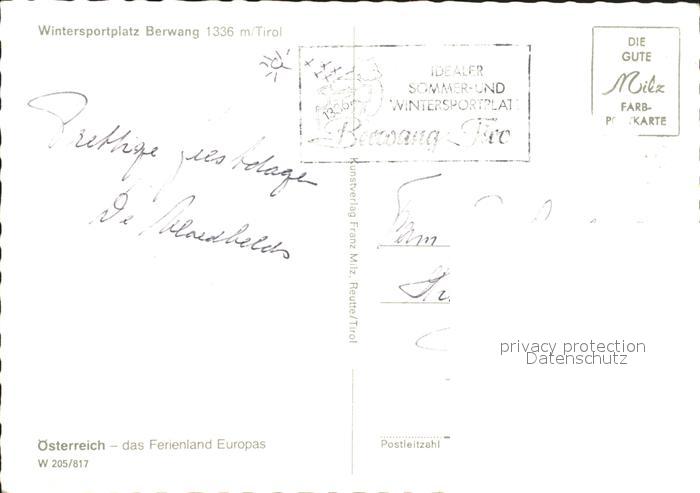 Wintersportplatz Berwang 1336 m/Tirol
IDEALER
SOMMER-UND
WINTERSPORTPLATZ
1336 m
Berwang-Tirol
DIE
GUTE
Milz
FARB-
POSTKARTE
Prettige feestdagen
De
Fam
Kunstverlag Franz Milz, Reutte/Tirol
privacy protection
Datenschutz
Österreich – das Ferienland Europas
W 205/817
Postleitzahl